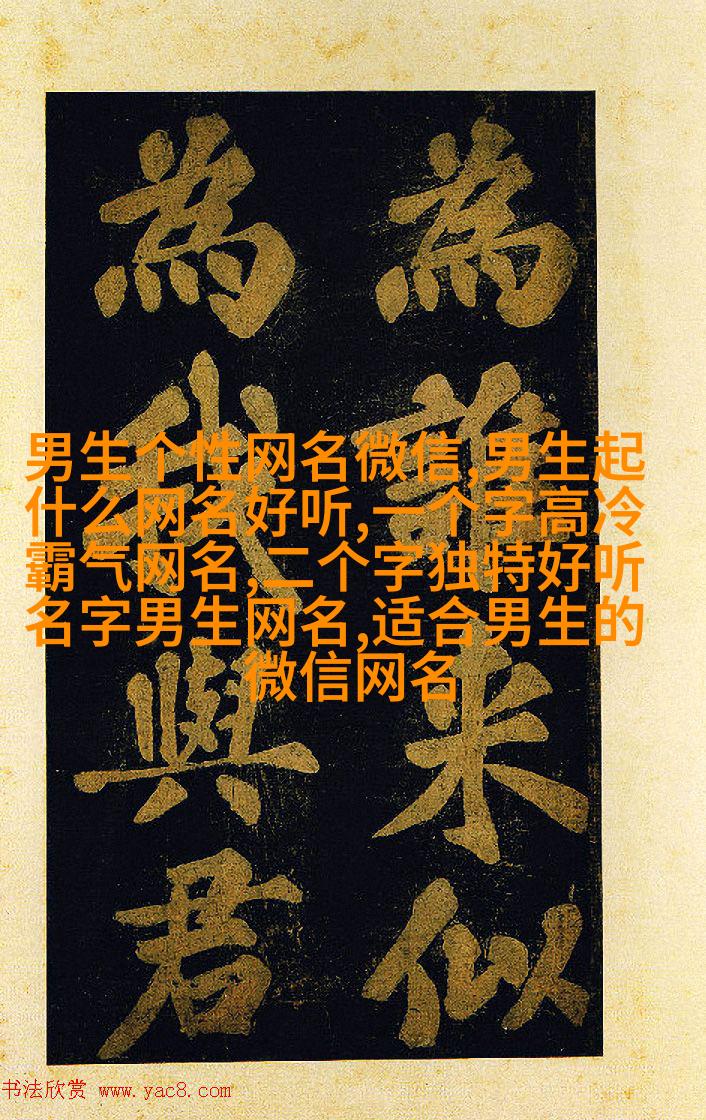 男生个性网名微信,男生起
什么网名好听,一个字高冷
霸气网名,二个字独特好听
名字男生网名,适合男生的
微信网名
為誰来似
為我與君
书法欣赏 www.yac8.com